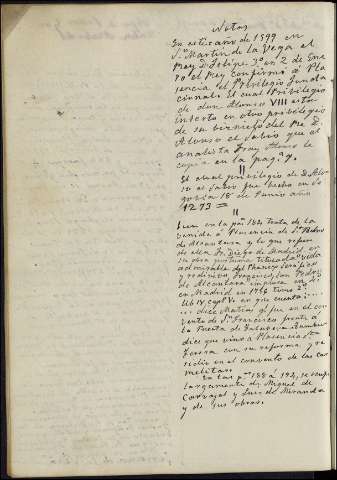 Notas
En este año de 1599 en
Sn Martin de la Vega el
Rey D. Felipe 3º en 2 de Ene
ro el Rey confirmó á Pla
sencia el Privilegio funda
cional. El cual Privilegio
de don Alonso VIII esta
inserto en otro privilegio
de su biznieto del Rey D.
Alonso el Sabio que el
analista Fray Alonso le
copia en la pag. 7.
"
El cual privilegio de D. Alon
so el Sabio fue hecho en Se
govia 18 de Junio año
1273 =
"
en la pa 182 trata de la
venida á Plasencia de Sn Pedro
de Alcantara y lo que refie
re de ella Fr. Diego de Madrid en
su obra postuma titulada Vida
admirable del Phenix Serafico
y redivivo Francisco, San Pedro
de Alcantara impresa en
en Madrid en 1765 tomo 2º
lib IV, capº V en que cuenta
dice Matias Gil fue en el con
vento de Sn Francisco frente á
la Puerta de Talavera.
dice que vino a Plasencia Sta
Teresa con su reforma, y re
sidio en el convento de las car
melitas.
En las pas 188 á 192, se ocupa
largamente de Miguel de
Carvajal y Luis de Miranda
y de sus obras.